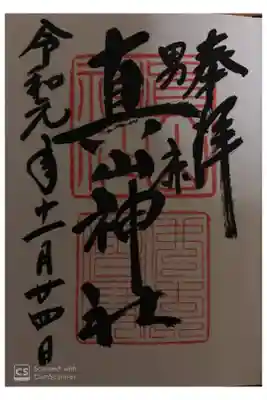 奉拝
男鹿
真山神社
令和元年十一月廿四日
CS Scanned with CamScanner